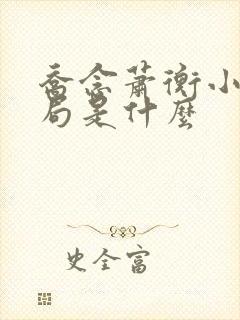 喬念蕭衡小
局是什麼
史全富